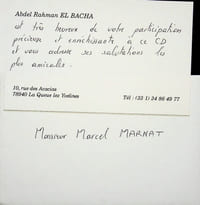 Abdel Rahman EL BACHA
est très heureux de votre participation
précieuse et enrichissante à ce CD
et vous adresse ses salutations les
plus amicales.
10, rue des Acacias
78940 La Queue les Yvelines
Tél : (33 1) 34 86 49 77
Monsieur Marcel MARNAT